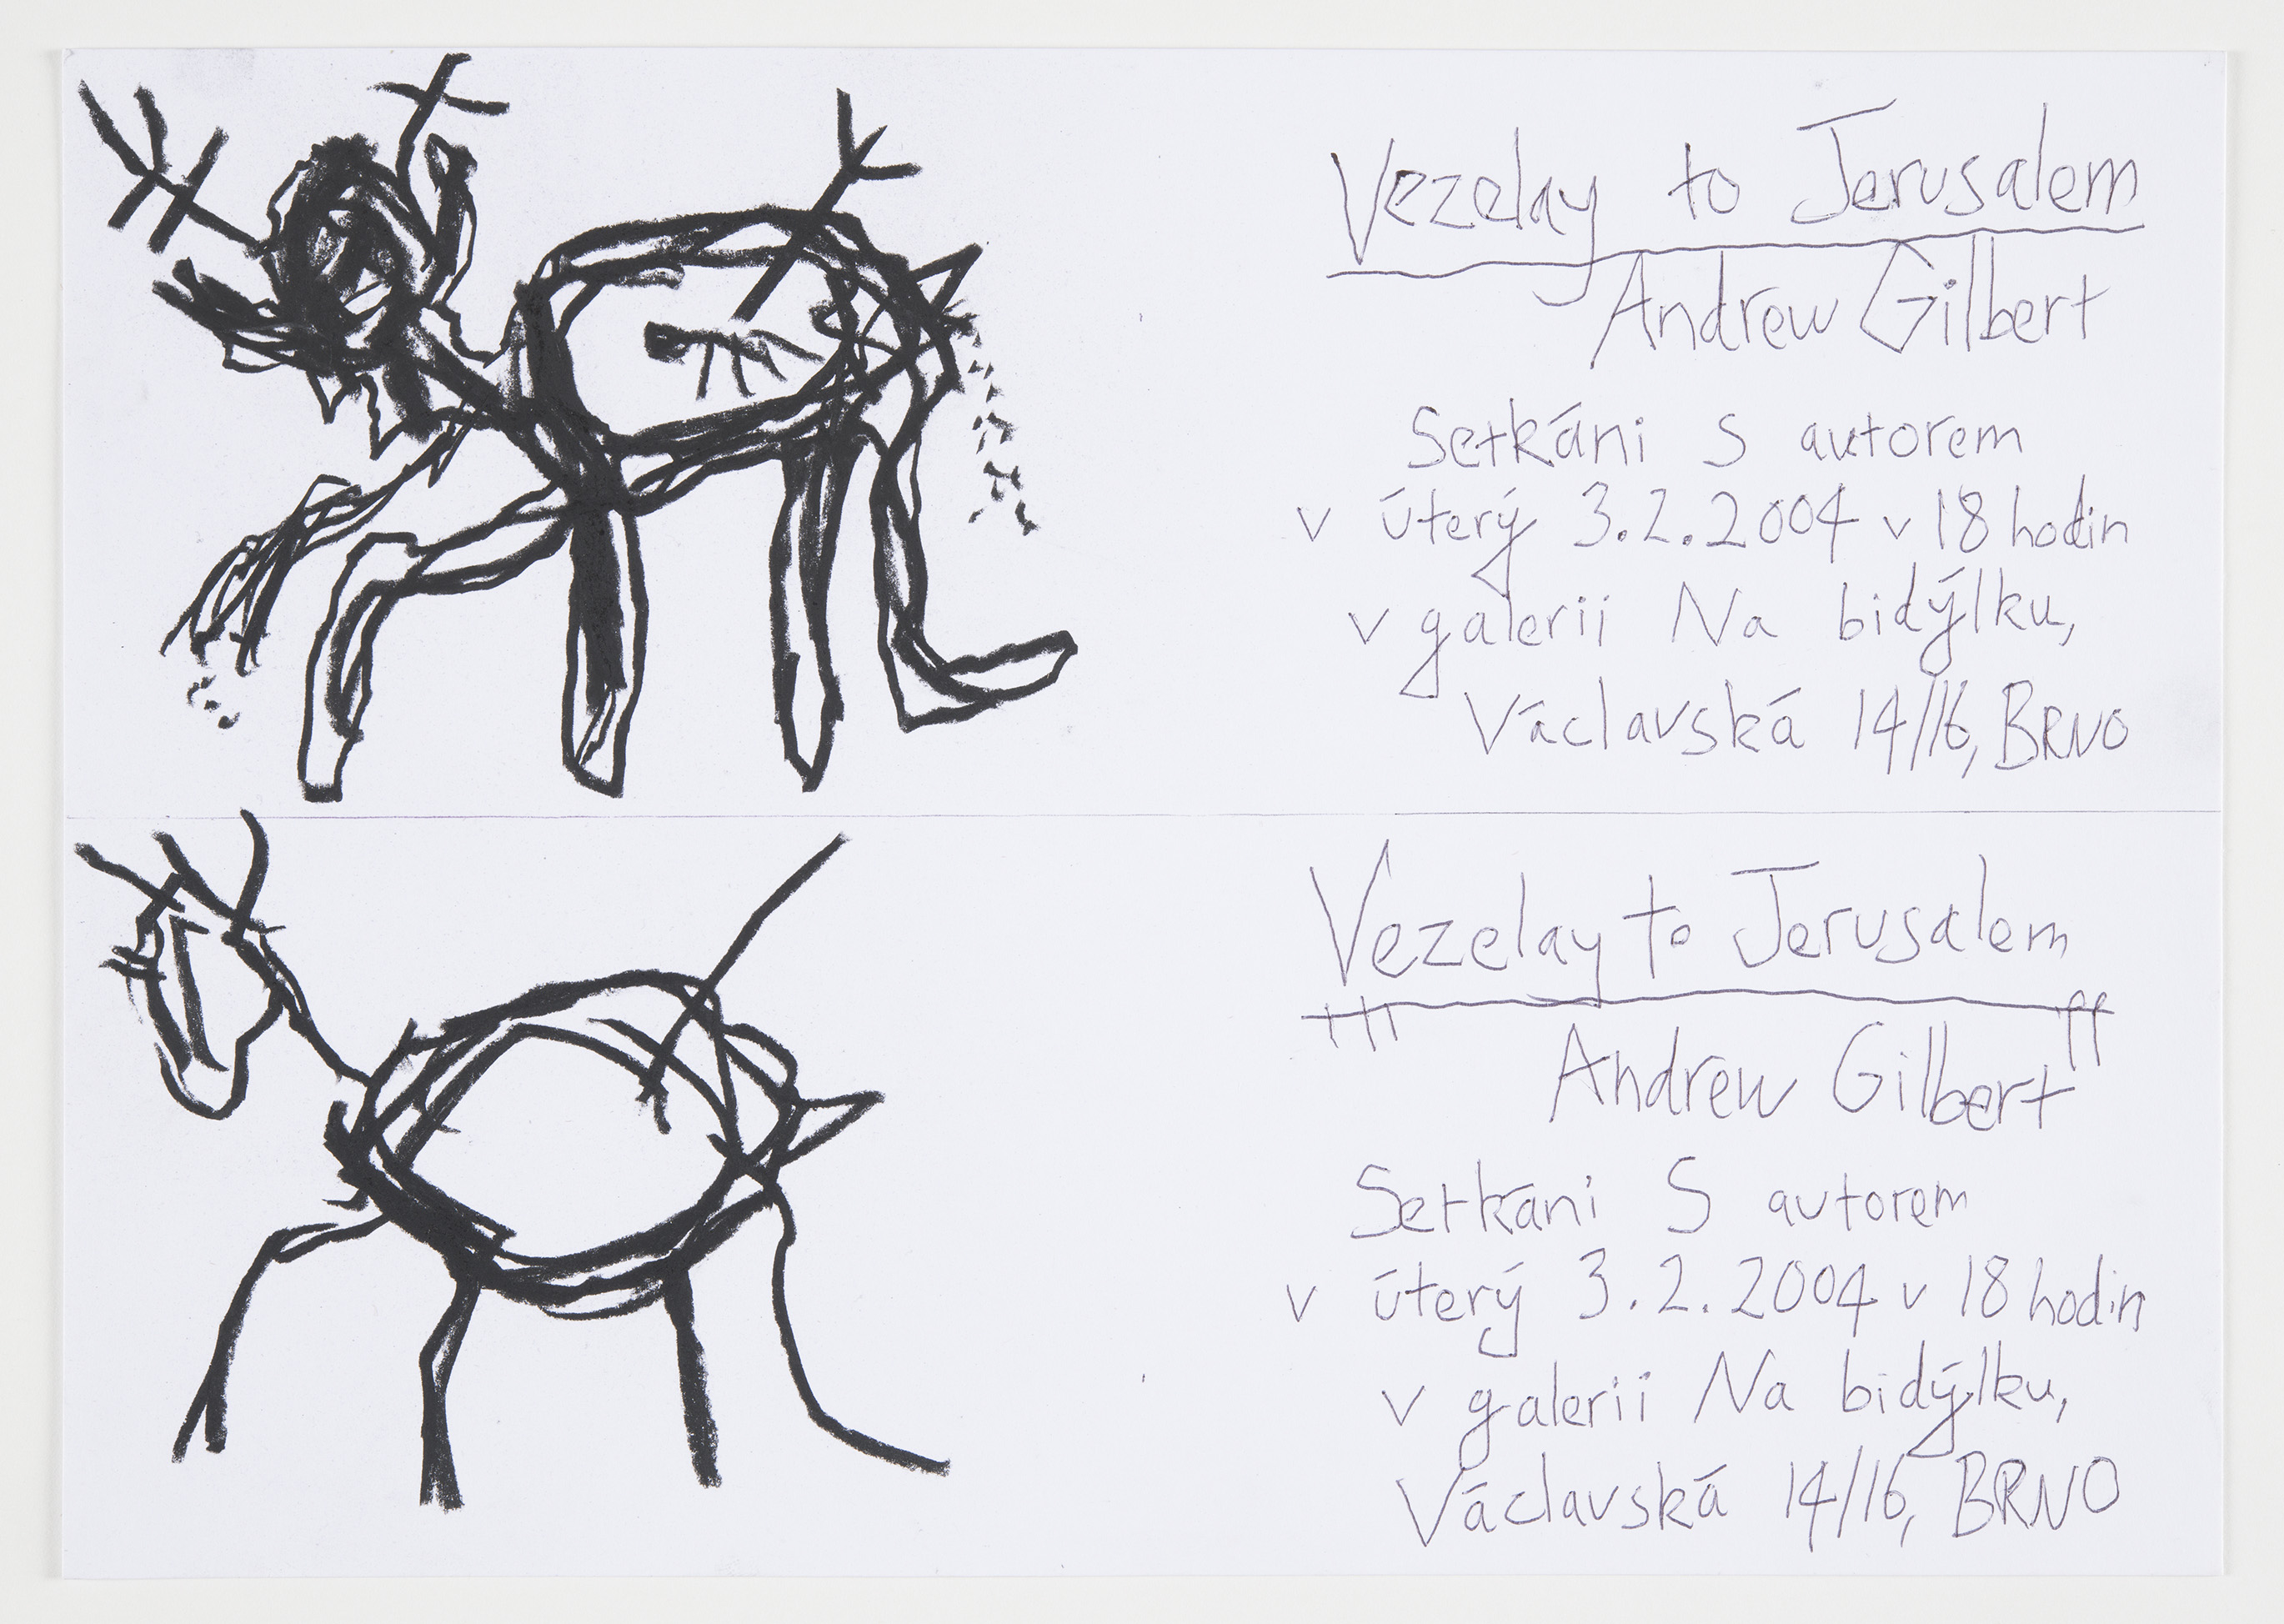 Vezelay to Jerusalem
Andrew Gilbert
Setkáni S autorem
v úterý 3.2.2004 v 18 hodin
v galerii Na bidýlku,
Václavská 14/16, BRNO
Vezelay to Jerusalem
Andrew Gilbert
Setkáni S autorem
v úterý 3.2.2004 v 18 hodin
v galerii Na bidýlku,
Václavská 14/16, BRNO